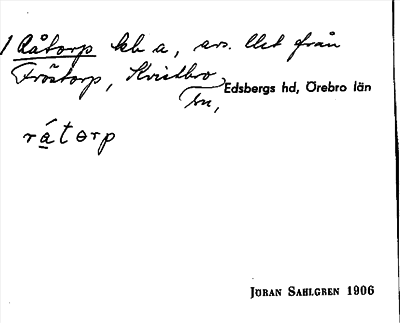 1 Råtorp lh a, avs. Utet från
Fröstorp, Kvistbro
sn, Edsbergs hd, Örebro län
rátorp
JÖRAN SAHLGREN 1906